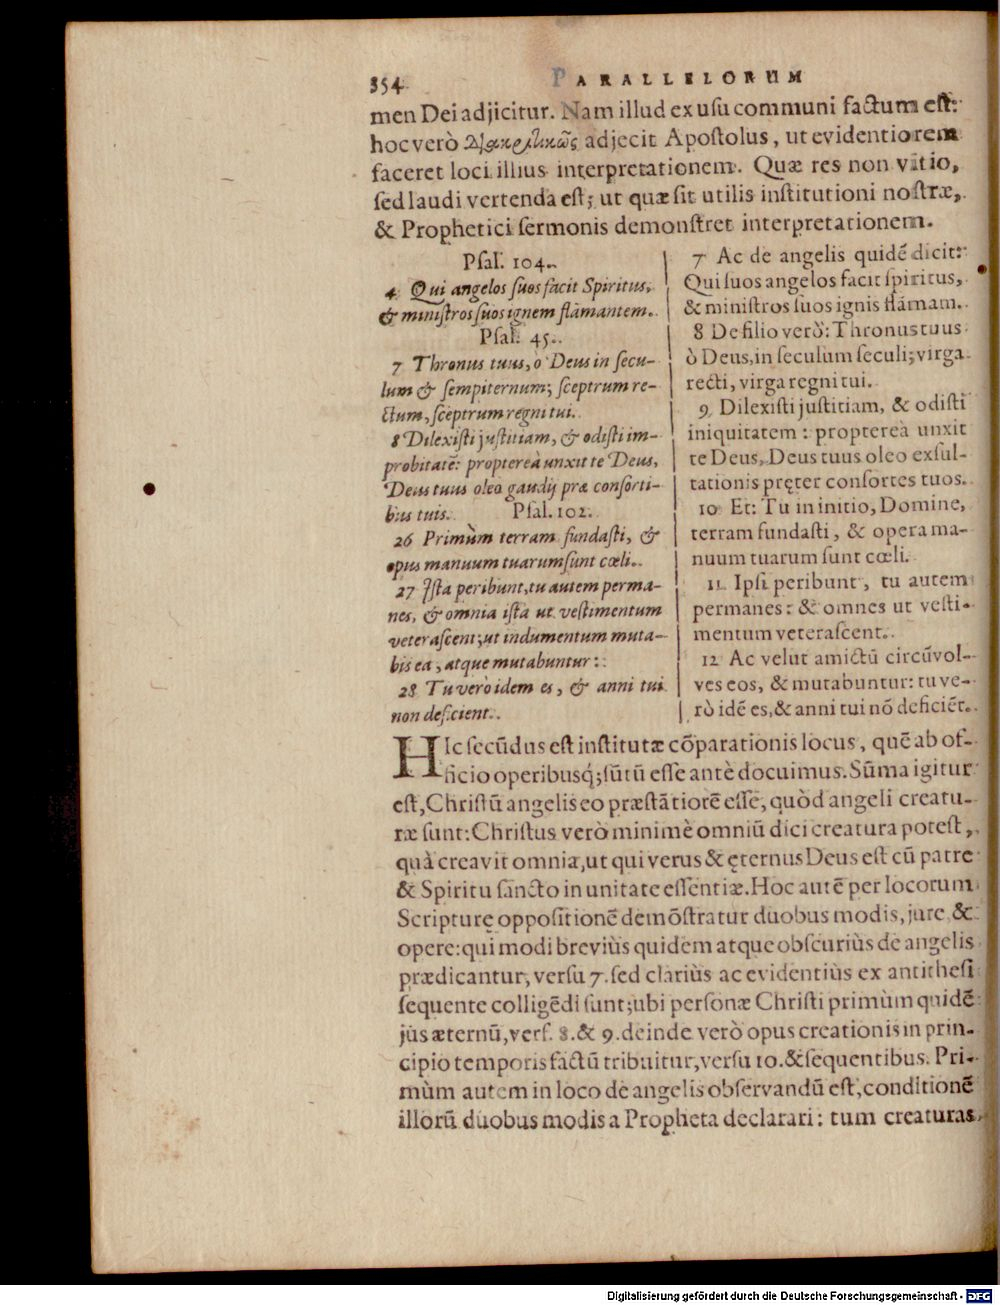 354 PARALLELORUM
men Dei adjicitur. Nam illud ex usu communi factum est:
hoc verò διακριτικῶς adjecit Apostolus, ut evidentiorem
faceret loci illius interpretationem. Quæ res non vitio,
sed laudi vertenda est; ut quæ sit utilis institutioni nostræ,
& Prophetici sermonis demonstret interpretationem.
Psal. 104.
4 Qui angelos suos facit Spiritus,
& ministros suos ignem flāmantem.
Psal. 45.
7 Thronus tuus, ò Deus in secu-
lum & sempiternum; sceptrum re-
ctum, sceptrum regni tui.
8 Dilexisti justitiam, & odisti im-
probitatē: propterea unxit te Deus,
Deus tuus oleo gaudij præ consorti-
bus tuis. Psal. 102.
26 Primùm terram fundasti, &
opus manuum tuarum sunt cœli.
27 Ista peribunt, tu autem perma-
nes, & omnia ista ut vestimentum
veterascent; ut indumentum muta-
bis ea, atque mutabuntur:
28 Tu verò idem es, & anni tui
non deficient.
7 Ac de angelis quidē dicit:
Qui suos angelos facit spiritus,
& ministros suos ignis flāmam.
8 De filio verò: Thronus tuus
ò Deus, in seculum seculi; virga
recti, virga regni tui.
9 Dilexisti justitiam, & odisti
iniquitatem: propterea unxit
te Deus, Deus tuus oleo exsul-
tationis pręter consortes tuos.
10 Et: Tu in initio, Domine,
terram fundasti, & opera ma-
nuum tuarum sunt cœli.
11 Ipsi peribunt, tu autem
permanes: & omnes ut vesti-
mentum veterascent.
12 Ac velut amictū circūvol-
ves eos, & mutabuntur: tu ve-
rò idē es, & anni tui nō deficiēt.
HIc secūdus est institutæ cōparationis locus, quē ab of-
ficio operibusq́; sūtū esse antè docuimus. Sūma igitur
est, Christū angelis eo præstātiorē esse, quòd angeli creatu-
ræ sunt: Christus verò minimè omniū dici creatura potest,
quà creavit omnia, ut qui verus & ęternus Deus est cū patre
& Spiritu sancto in unitate essentiæ. Hoc autē per locorum
Scripturę oppositionē demōstratur duobus modis, jure &
opere: qui modi breviùs quidem atque obscuriùs de angelis
prædicantur, versu 7. sed clariùs ac evidentiùs ex antithesi
sequente colligēdi sunt; ubi personæ Christi primùm quidē
jus æternū, vers. 8. & 9. deinde verò opus creationis in prin-
cipio temporis factū tribuitur, versu 10. & sequentibus. Pri-
mùm autem in loco de angelis observandū est, conditionē
illorū duobus modis a Propheta declarari: tum creaturas
Digitalisierung gefördert durch die Deutsche Forschungsgemeinschaft - DFG